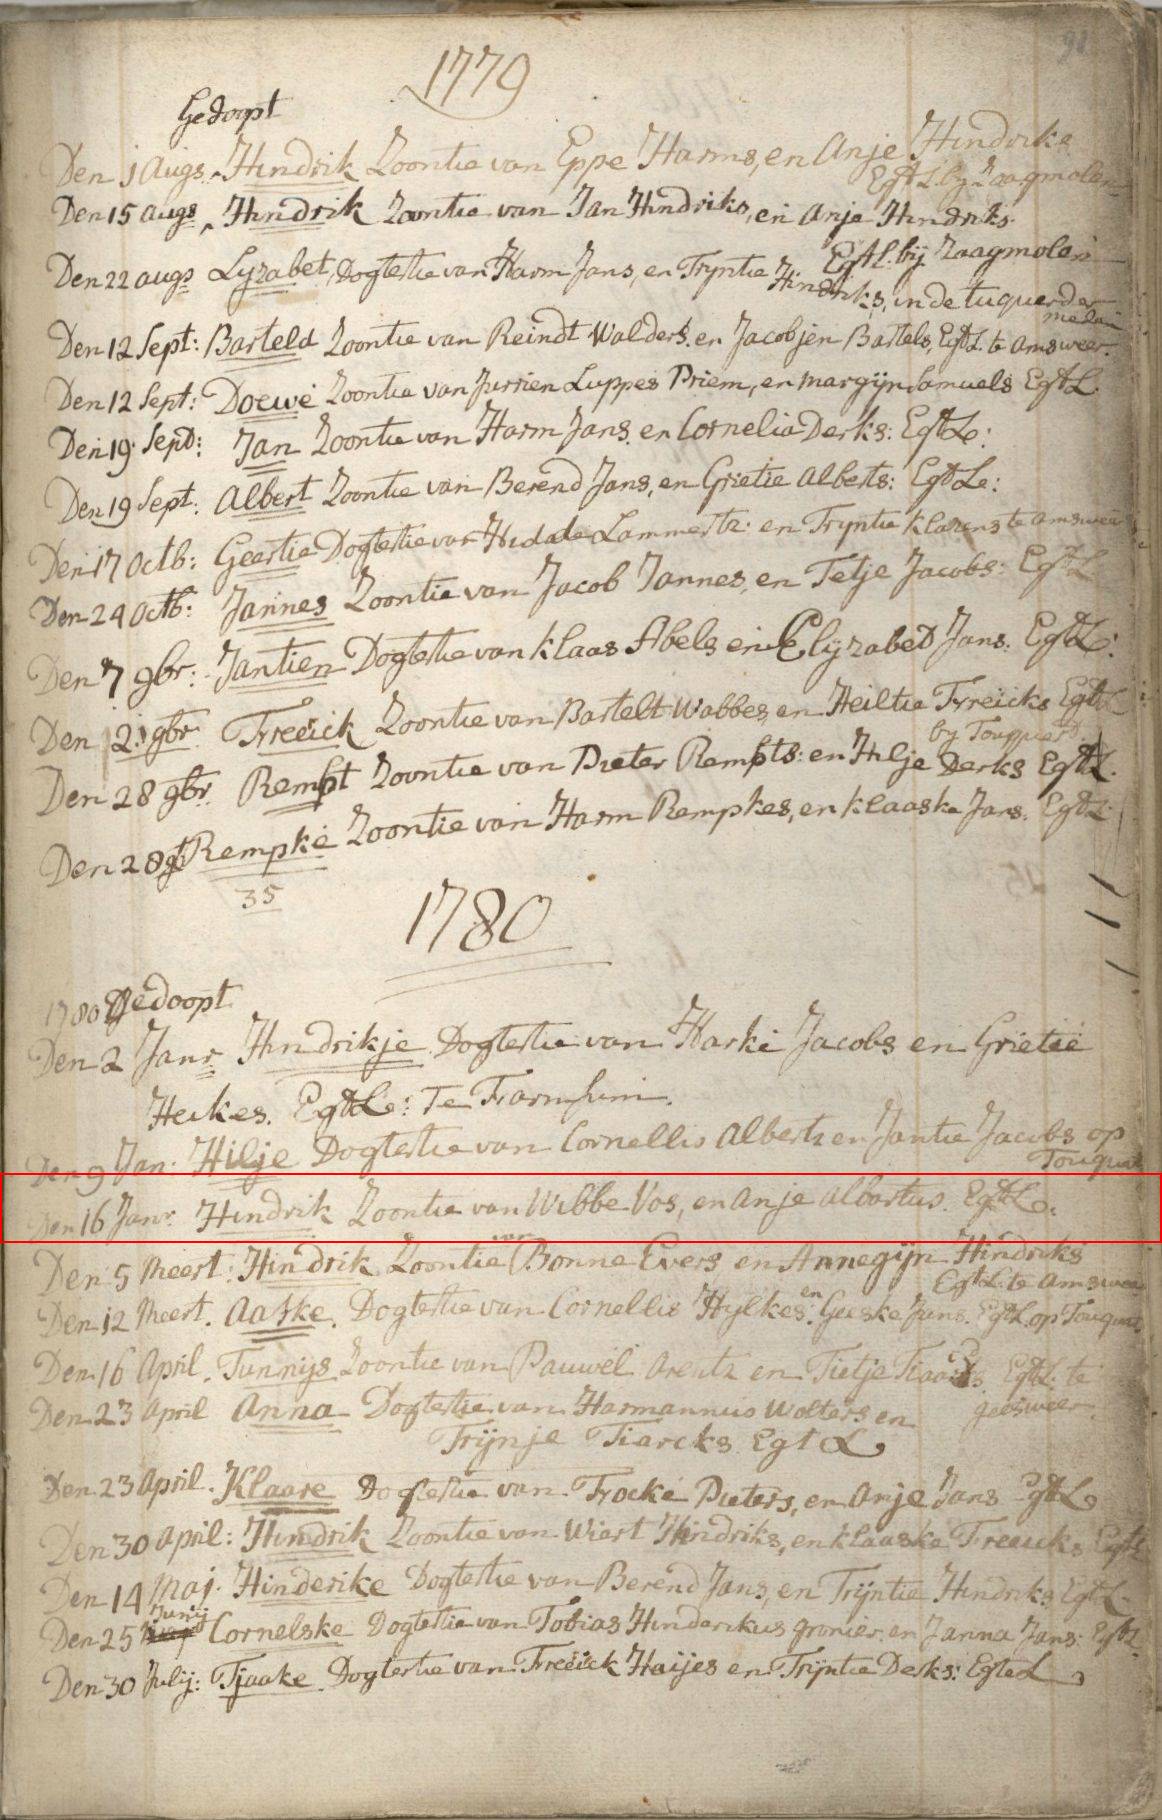 1779
Gedoopt
Den 1 Augs. Hindrik Zoontie van Eppe Harms, en Anje Hindriks
Egt L. by Zaagmolen
Den 15 augs Hindrik Zoontie van Jan Hindriks, en Anje Hindriks.
Egt L. bij Zaagmolen
Den 22 augs Lyzabet Dogtertie van Harm Jans, en Tryntie Hindriks, in de tuquerder
Den 12 Sept: Barteld Zoontie van Reindt Walders. en Jacobjen Bartels, Egt L. te amsweer.
Den 12 Sept: Doewe Zoontie van Jurrien Luppes Priem, en margijn Samuels Egt L.
Den 19 Sept: Jan Zoontie van Harm Jans. en Cornelia Derks: Egt Le:
Den 19 Sept: Albert Zoontie van Berend Jans, en Grietie Alberts: Egt Le:
Den 17 Octb: Geertie Dogtertie van Lammertz: en Tryntie Klasens te amsweer
Den 24 Octb: Jannes Zoontie van Jacob Jannes, en Tetje Jacobs: Egt L
Den 7 9br: Jantien Dogtertie van Klaas Abels en Elyzabed Jans. Egt L:
Den 21 9br. Freerick Zoontie van Bartelt Wabbes, en Heiltie Frericks Egt L
by Touquerd
Den 28 9br. Rempt Zoontie van Pieter Rempts: en Hilje Derks Egt L.
Den 28 9b Rempke Zoontie van Harm Rempkes, en Klaaske Jans. Egt L
35
1780
1780 Gedoopt
Den 2 Janr Hindrikje Dogtertie van Harke Jacobs en Grietie
Heikes. Egt Le: Te Farmsum.
Den 9 Jan. Hilje Dogtertie van Cornellis Alberts en Jantie Jacobs op
Touquat
Den 16 Janr. Hindrik Zoontie van Wibbe Vos, en Anje Albartus. Egt L.
Den 5 Meert: Hindrik Zoontie van Bonne Evers en Annegijn Hindriks
Egt L. te Amsweer
Den 12 Meert. Aafke. Dogtertie van Cornellis Hylkes. en Geeske Jans. Egt L. op Touquat.
Den 16 April. Tunnijs Zoontie van Pauwel Arentz en Tietje Egt L. te
geefsweer.
Den 23 April Anna Dogtertie van Harmannus Wolters en
Trijnje Tiarcks Egt L
Den 23 April. Klaare Dogtertie van Focke Pieters, en Anje Jans Egt L
Den 30 April: Hindrik Zoontie van Wiert Hindriks, en Klaaske Freericks Egt L
Den 14 Maj. Hinderike Dogtertie van Berend Jans, en Trijntie Hindriks Egt L.
Junij
Den 25 Cornelske Dogtertie van Tobias Hinderikus gronier. en Janna Jans: Egt L.
Den 30 Julij: Tjaake. Dogtertie van Freerick Haijes en Trijntie Derks: Egte L